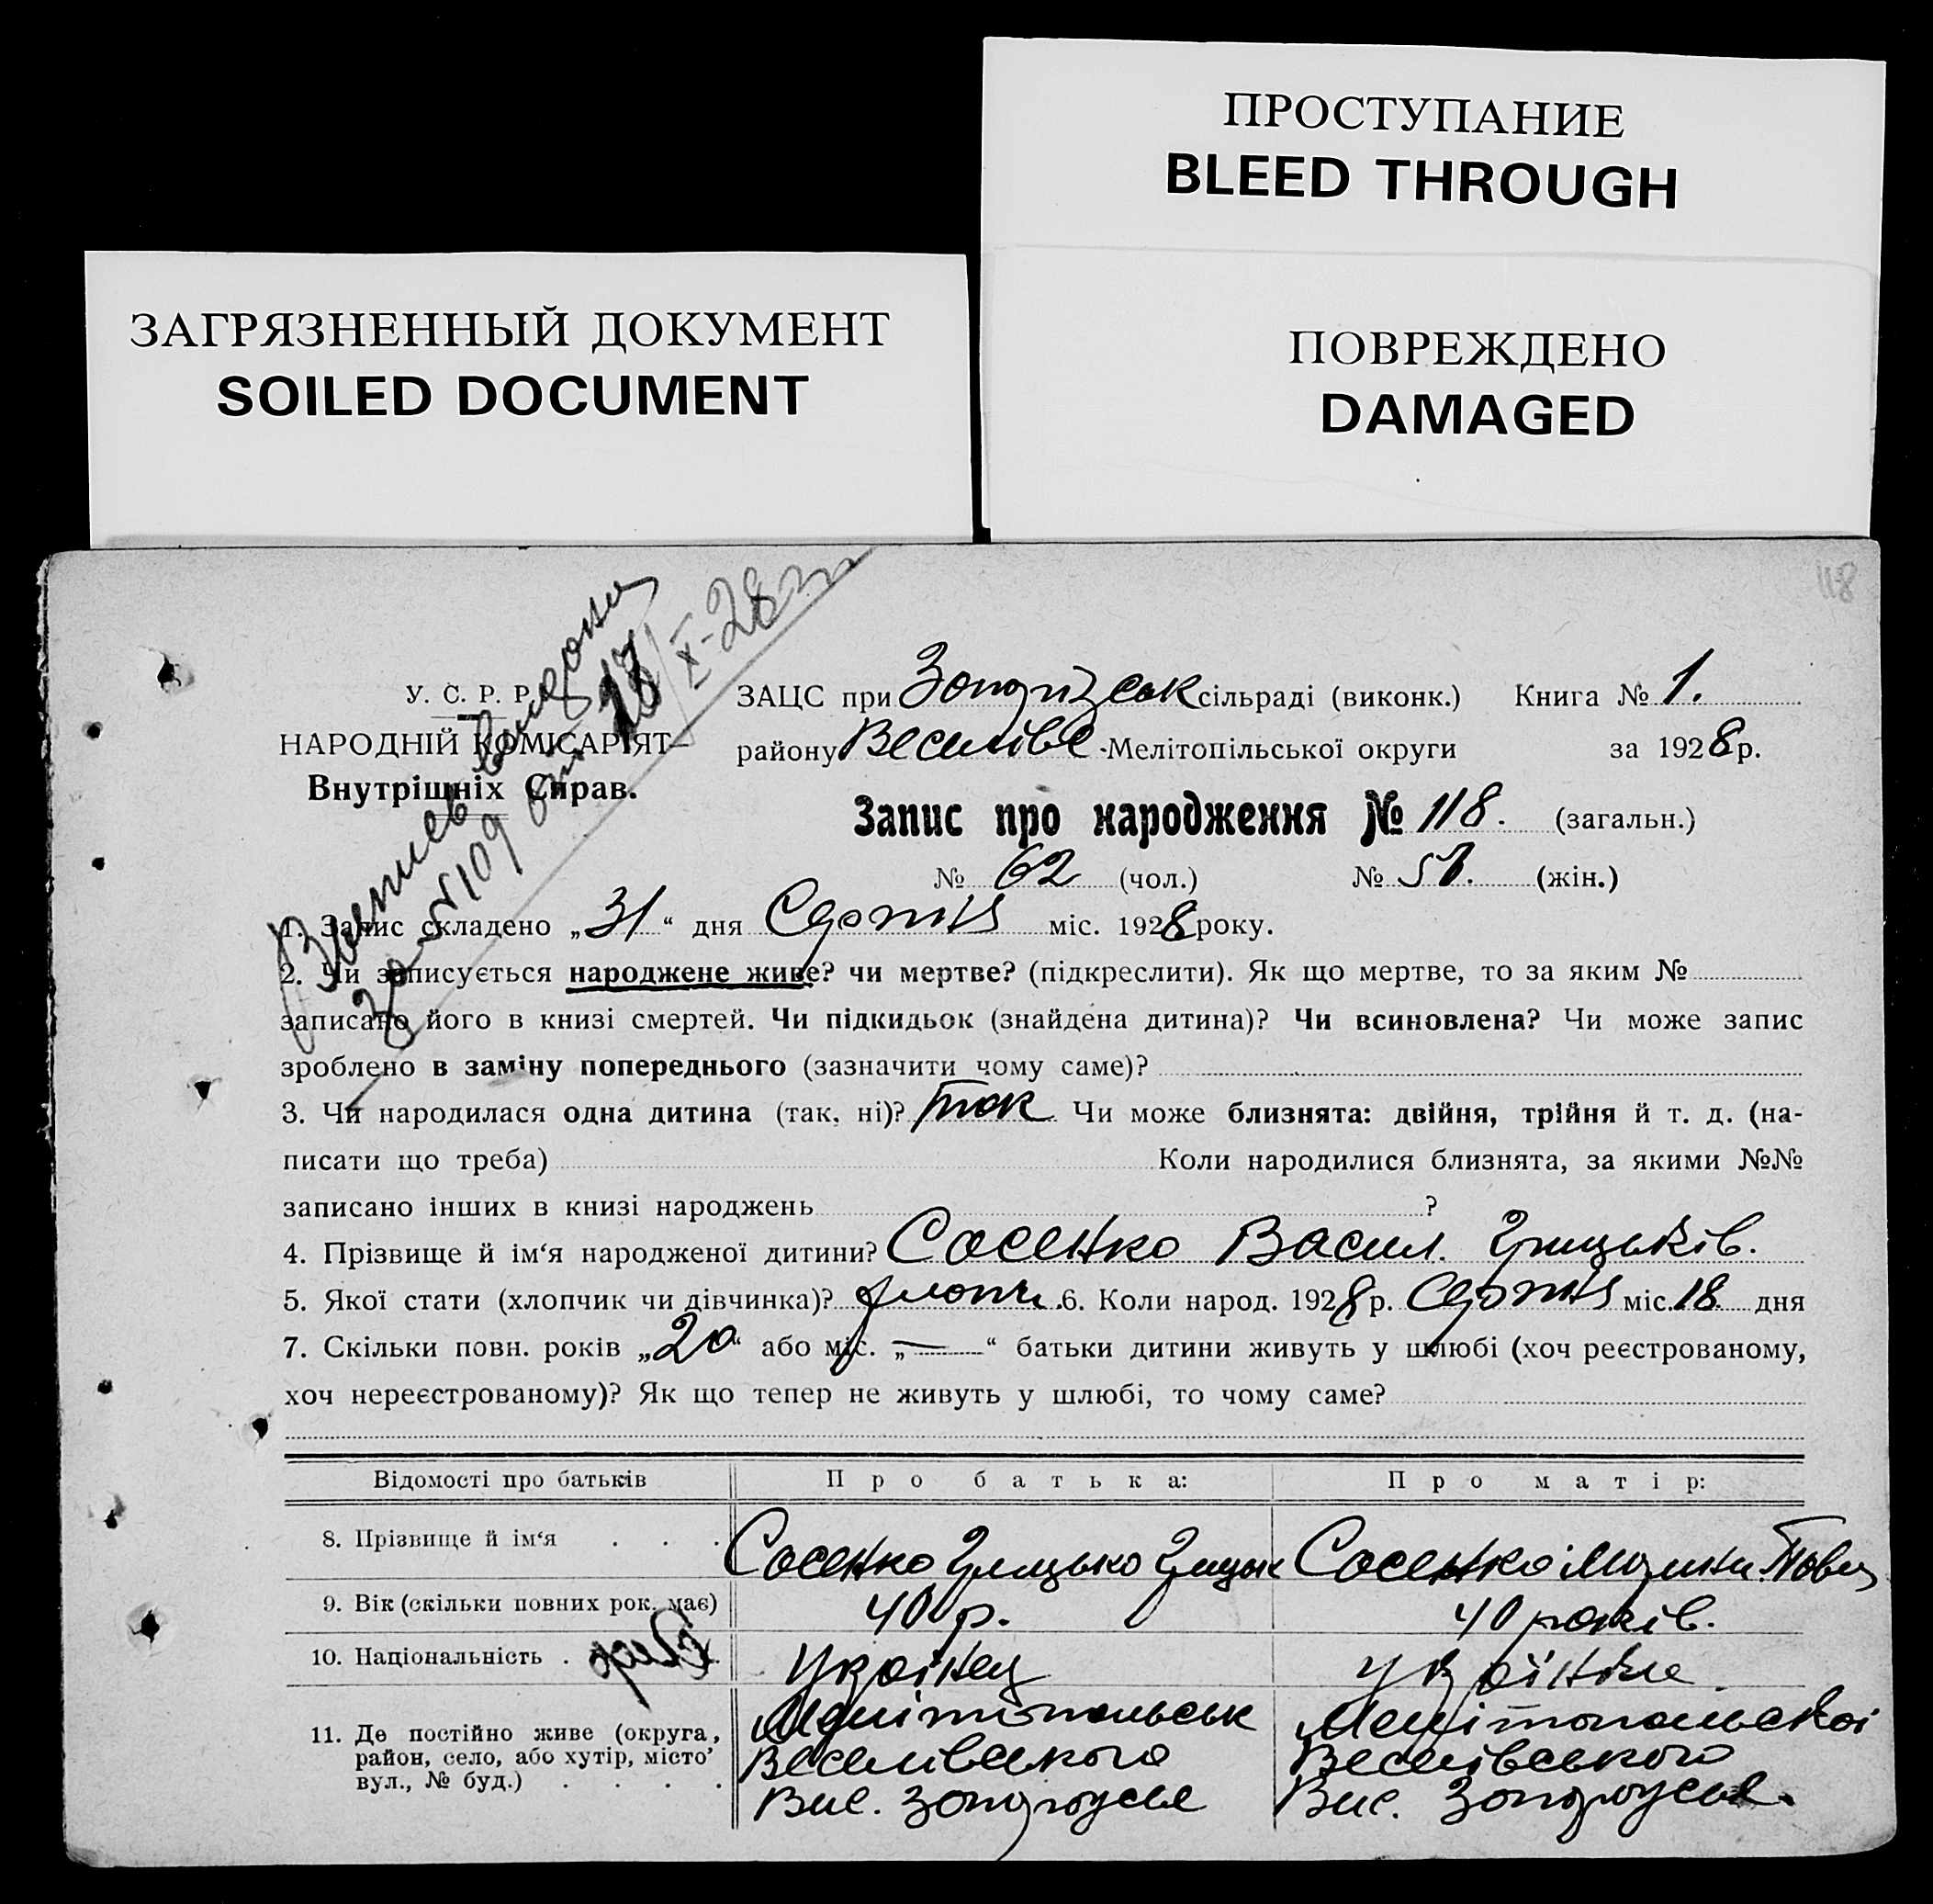 ПРОСТУПАНИЕ
BLEED THROUGH
ЗАГРЯЗНЕННЫЙ ДОКУМЕНТ
SOILED DOCUMENT
ПОВРЕЖДЕНО
DAMAGED
118
X-28
У. С. Р. Р.
НАРОДНІЙ КОМІСАРІЯТ
Внутрішніх Справ.
№ 109 18
ЗАЦС при сільраді (виконк.) Книга № 1.
району Веселівс -Мелітопільської округи за 1928 р.
Запис про народження № 118. (загальн.)
№ 62 (чол.) № (жін.)
1. Запис складено „31“ дня міс. 1928 року.
2. Чи записується народжене живе? чи мертве? (підкреслити). Як що мертве, то за яким №
записано його в книзі смертей. Чи підкидьок (знайдена дитина)? Чи всиновлена? Чи може запис
зроблено в заміну попереднього (зазначити чому саме)?
3. Чи народилася одна дитина (так, ні)? так Чи може близнята: двійня, трійня й т. д. (на-
писати що треба) Коли народилися близнята, за якими №№
записано інших в книзі народжень ?
4. Прізвище й ім‘я народженої дитини? Сосенко Васил. Грицьків.
5. Якої стати (хлопчик чи дівчинка)? хлопч. 6. Коли народ. 1928 р. міс. 18 дня
7. Скільки повн. років „20“ або міс. „—“ батьки дитини живуть у шлюбі (хоч реєстрованому,
хоч нереєстрованому)? Як що тепер не живуть у шлюбі, то чому саме?
Відомості про батьків Про батька: Про матір:
8. Прізвище й ім‘я . . . Сосенко Грицько Грицьк Сосенко
9. Вік (скільки повних рок. має) 40 р. 40 років.
10. Національність . Українец Українка
11. Де постійно живе (округа,
район, село, або хутір, місто’
вул., № буд.) . . . .
Мелітопольськ Мелітопольської
Веселівського Веселівського
Вис. Вис.